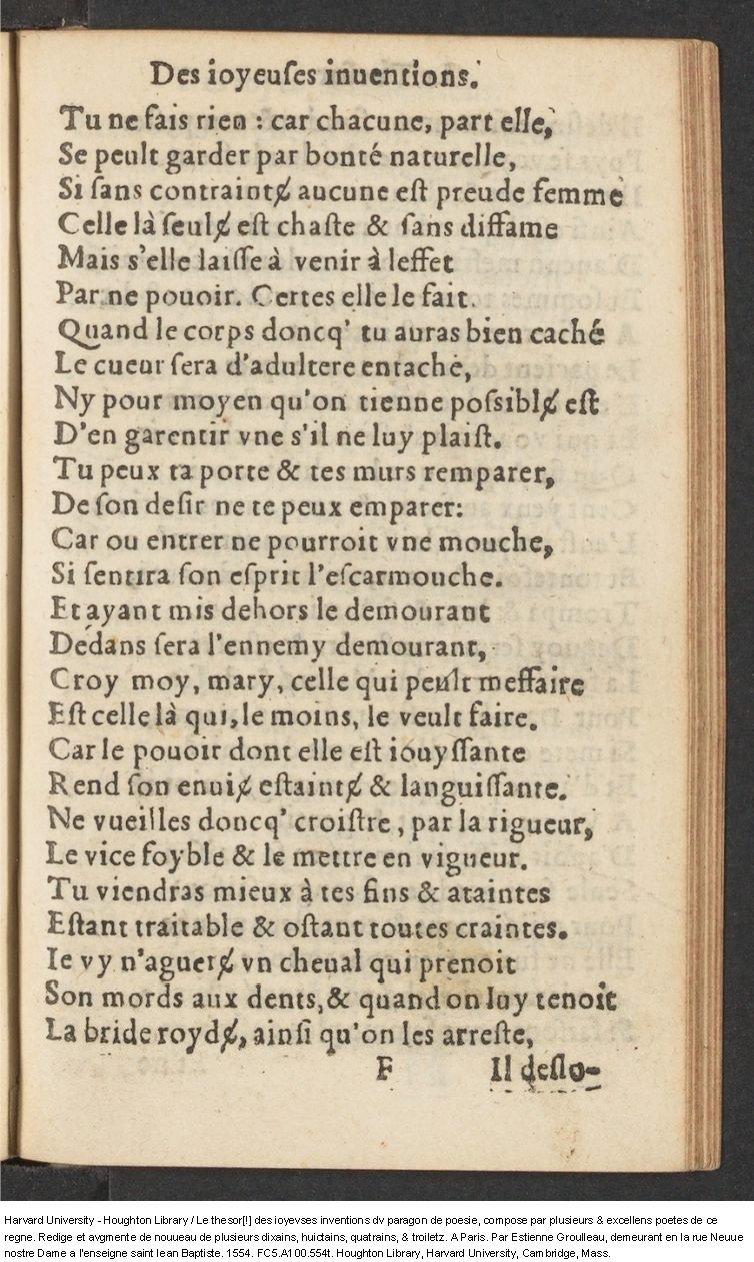 Des ioyeuſes inuentions.
Tu ne fais rien : car chacune, part elle,
Se peult garder par bonté naturelle,
Si ſans contrainte̸ aucune eſt preude femme
Celle là ſeule̸ eſt chaſte & ſans diffame
Mais s'elle laiſſe à venir à leffet
Par ne pouoir. Certes elle le fait.
Quand le corps doncq' tu auras bien caché
Le cueur ſera d'adultere entaché,
Ny pour moyen qu'on tienne poſsible̸ eſt
D'en garentir vne s'il ne luy plaiſt.
Tu peux ta porte & tes murs remparer,
De ſon deſir ne te peux emparer:
Car ou entrer ne pourroit vne mouche,
Si ſentira ſon eſprit l'eſcarmouche.
Et ayant mis dehors le demourant
Dedans ſera l'ennemy demourant,
Croy moy, mary, celle qui peult meffaire
Eſt celle là qui, le moins, le veult faire.
Car le pouoir dont elle eſt iouyſſante
Rend ſon enuie̸ eſtainte̸ & languiſſante.
Ne vueilles doncq' croiſtre, par la rigueur,
Le vice foyble & le mettre en vigueur.
Tu viendras mieux à tes fins & ataintes
Eſtant traitable & oſtant toutes craintes.
Ie vy n'aguere̸ vn cheual qui prenoit
Son mords aux dents, & quand on luy tenoit
La bride royde̸, ainſi qu'on les arreſte,
F Il deſlo-
Harvard University - Houghton Library / Le thesor[!] des ioyevses inventions dv paragon de poesie, compose par plusieurs & excellens poetes de ce
regne. Redige et avgmente de nouueau de plusieurs dixains, huictains, quatrains, & troiletz. A Paris. Par Estienne Groulleau, demeurant en la rue Neuue
nostre Dame a l'enseigne saint Iean Baptiste. 1554. FC5.A100.554t. Houghton Library, Harvard University, Cambridge, Mass.